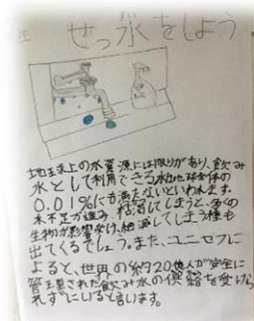 せっ水をしよう
地球上の水資源には限りがあり、飲み
水として利用できる水は地球全体の
0.01%にも満たないといわれます。
水不足が進み、枯渇してしまうと、多くの
生物が影響受け、絶滅してしまう種も
出てくるでしょう。また、ユニセフに
よると、世界の約20億人が安全に
管理された飲み水の供給を受けら
れずにいると言います。